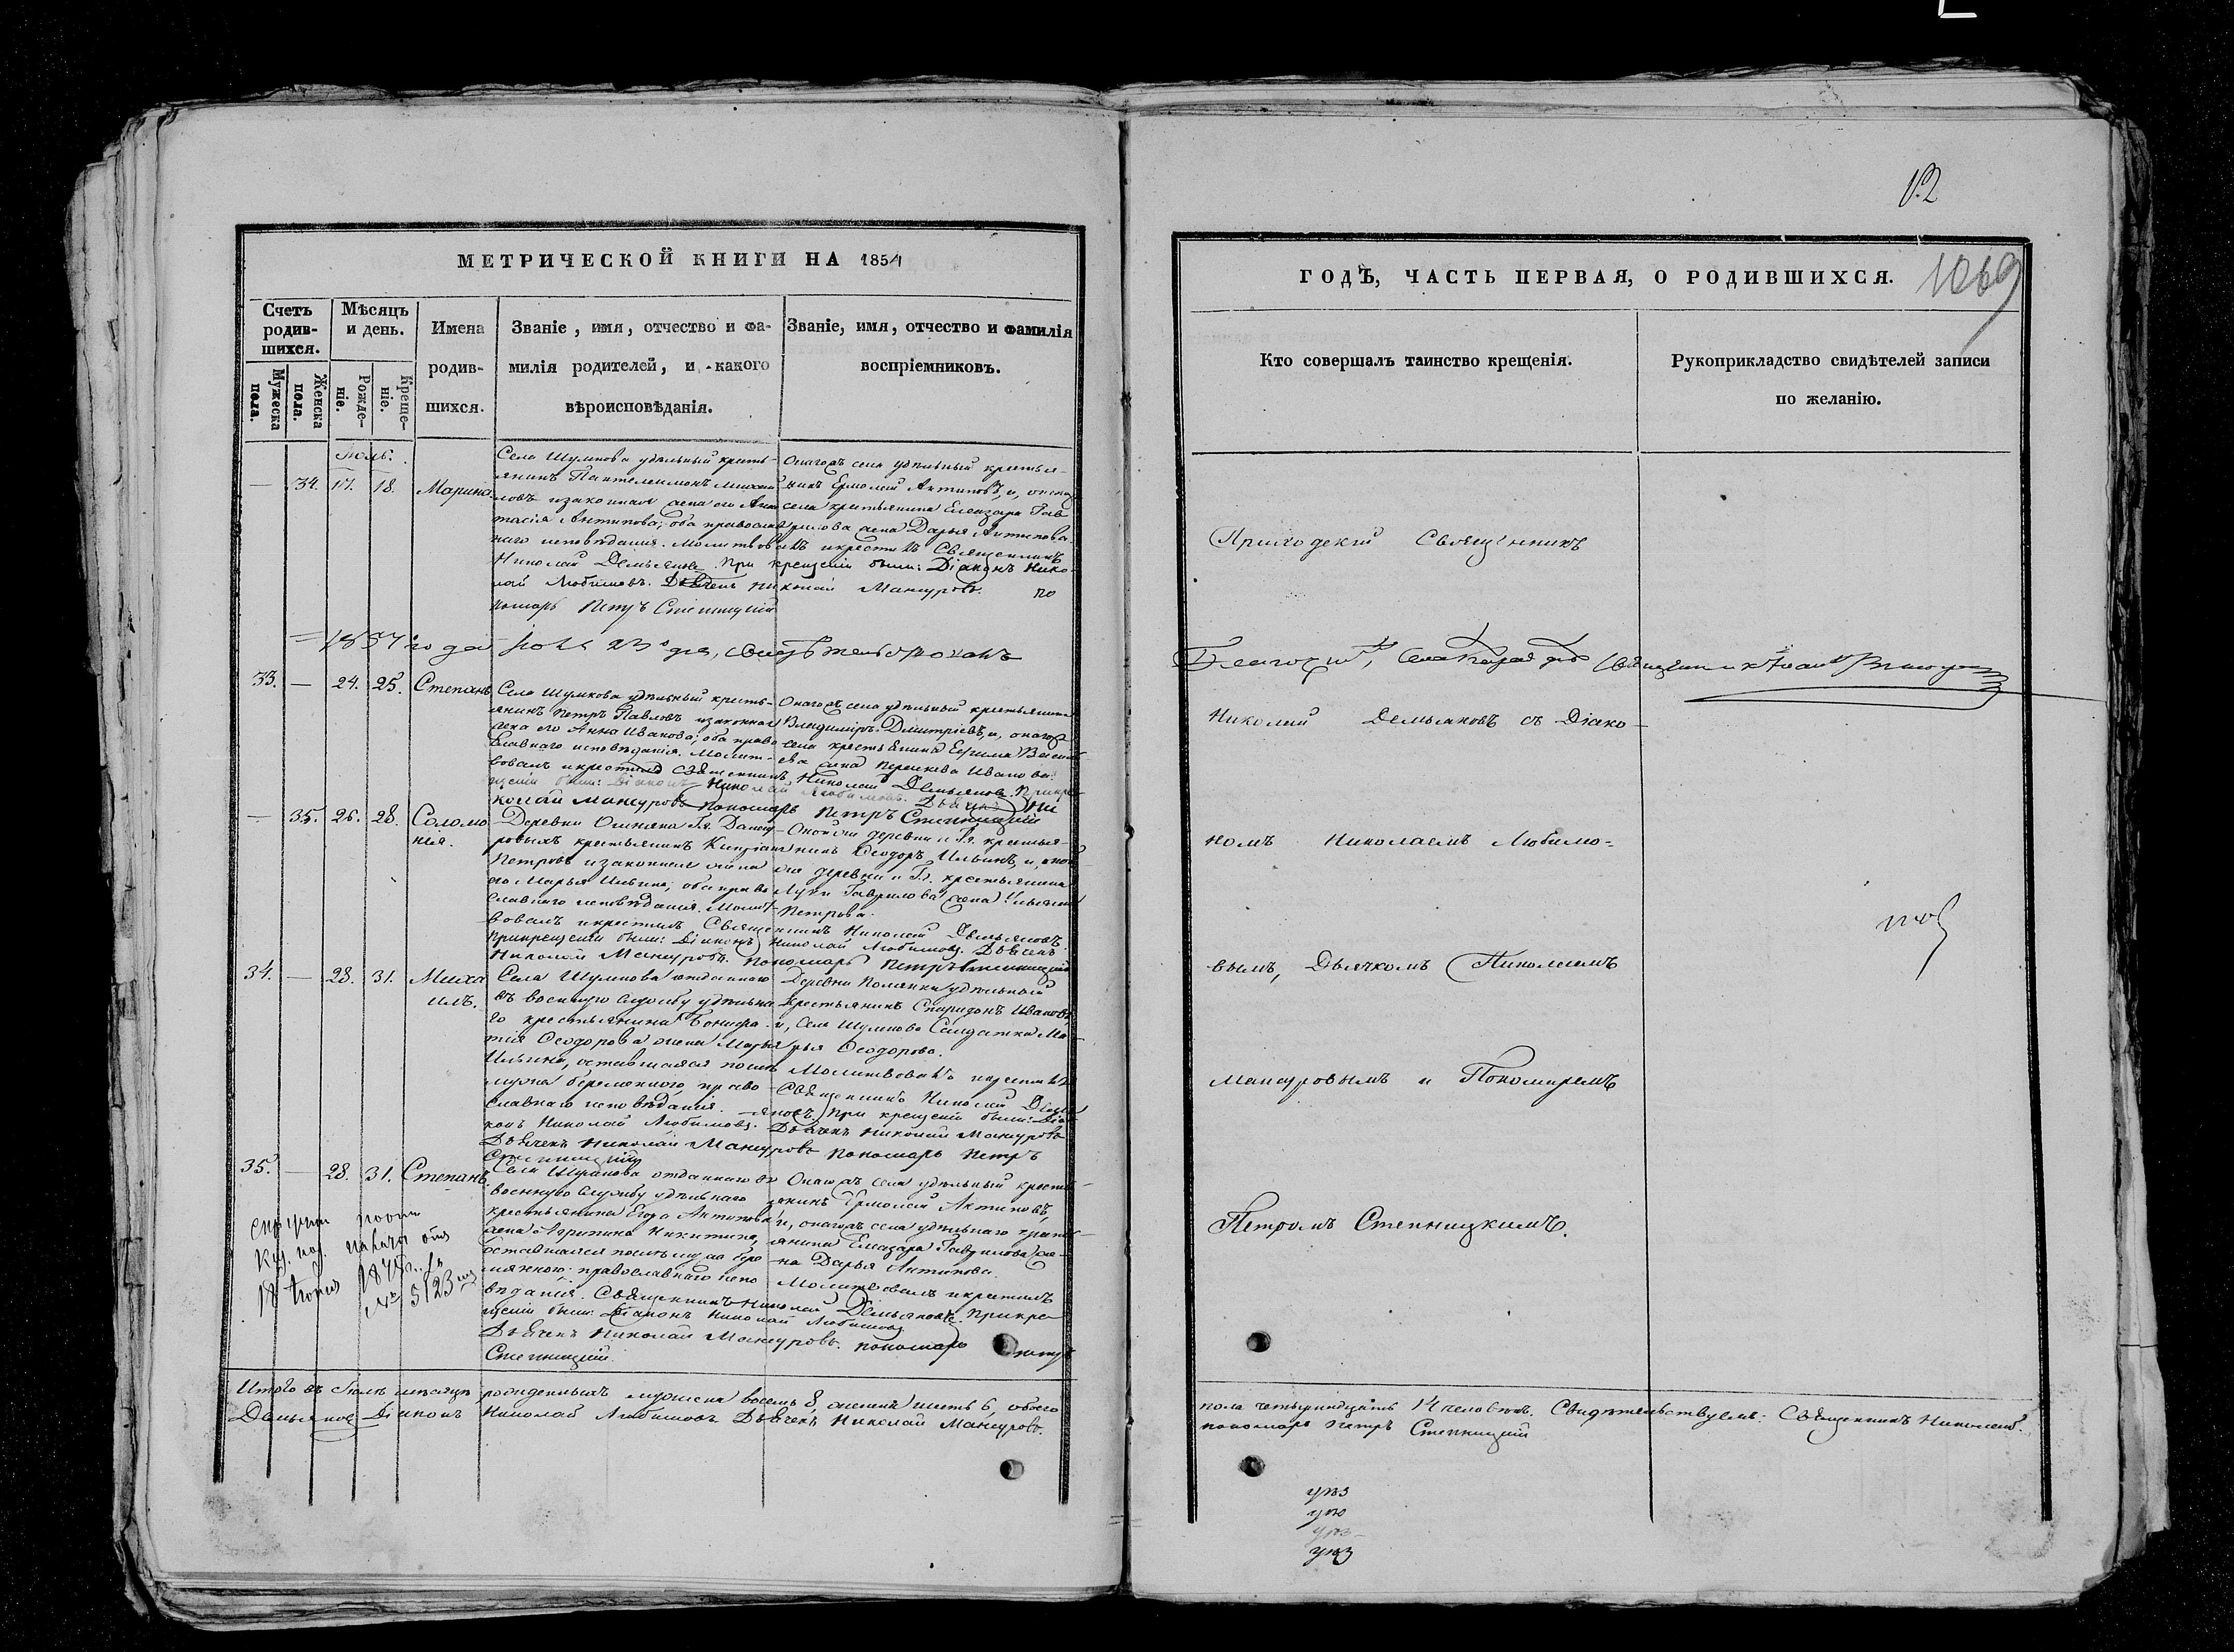 12
МЕТРИЧЕСКОЙ КНИГИ НА 1854
Счетъ родив-шихся.
Мѣсяцъ и день.
Имена родив-шихся.
Званіе, имя, отчество и фа-
милія родителей, и какого
вѣроисповѣданія.
Званіе, имя, отчество и фамилія
воспріемниковъ.
Мужеска пола.
Женска пола.
Рожде-ніе.
Креще-ніе.
Іюль.
— 34. 17. 18. Марина
Села Шумкова удѣльный кресть-
янинъ Пантелеимонъ Михай
ловъ и законная жена его Анас
тасія Антипова; оба православ
наго исповѣданія. Молитвовалъ и крестилъ Священникъ
Николай Демьяновъ. При крещеніи были: Діаконъ Нико-
лай Любимовъ. Дьячекъ Николай Мансуровъ. по
номарь Петръ Степницкій
Онагожъ села удѣльный крестья-
нинъ Ермолай Антиповъ, и, онагожъ
села крестьянина Елеазара Гав
рилова жена Дарья Антипова.
1854 года Іюля 23 дня, свидѣтельствовалъ
33. — 24. 25. Степанъ
Села Шумкова удѣльный кресть-
янинъ Петръ Павловъ и законная
жена его Анна Иванова; оба право
славнаго исповѣданія. Молит-
вовалъ и крестилъ Священникъ Николай Демьяновъ. При кре-
щеніи были: Діаконъ Николай Любимовъ. Дьячекъ Ни
колай Мансуровъ пономарь Петръ Степницкій
Онагожъ села удѣльный крестьянинъ
Владиміръ Димитріевъ, и, онагожъ
села крестьянина Ефима Василь
ева жена Параскева Иванова.
— 35. 26. 28. Соломо
нія.
Деревни
ровыхъ крестьянинъ Кипріанъ
Петровъ и законная жена
его Марья Ильина; оба право
славнаго исповѣданія. Молит-
вовалъ и крестилъ Священникъ Николай Демьяновъ.
При крещеніи были: Діаконъ Николай Любимовъ. Дьячекъ
Николай Мансуровъ. пономарь Петръ Степницкій
Онойже деревни и Гж. крестья-
нинъ Ѳеодоръ Ильинъ, и, оной
же деревни и Гж. крестьянина
Луки Гаврилова жена
Петрова.
34. — 28. 31. Миха
илъ.
Села Шумкова отданнаго
въ военную службу удѣльна
го крестьянина Бонифа
тія Ѳеодорова жена Марья
Ильина, оставшаяся послѣ
мужа беременною, право
славнаго исповѣданія.
Деревни Полянки удѣльный
крестьянинъ Спиридонъ Ивановъ,
и, Села Шумкова Солдатка Ма-
рья Ѳеодорова.
Молитвовалъ и крестилъ
Священникъ Николай Демь
яновъ. При крещеніи были: Діа
конъ Николай Любимовъ. Дьячекъ Николай Мансуровъ
Дьячекъ Николай Мансуровъ пономарь Петръ
Степницкій
35. — 28. 31. Степанъ.
Села Шумкова отданнаго въ
военную службу удѣльнаго
крестьянина Егора Антипова
жена Агрипина Никитина,
оставшаяся послѣ мужа бере
менною, православнаго испо
вѣданія. Священникъ Николай Демьяновъ. При кре
щеніи были: Діаконъ Николай Любимовъ
Дьячекъ Николай Мансуровъ. пономарь Петръ
Степницкій.
Онагожъ села удѣльный кресть-
янинъ Ермолай Антиповъ,
и, онагожъ села удѣльнаго кресть-
янина Елеазара Гаврилова же-
на Дарья Антипова.
Молитвовалъ и крестилъ
18 Іюня 1875 г. за
№ 5123
Итого въ Іюлѣ мѣсяцѣ рожденныхъ мужеска восемь 8, женска шесть 6, обоего
Демьяновъ Діаконъ Николай Любимовъ Дьячекъ Николай Мансуровъ.
ГОДЪ, ЧАСТЬ ПЕРВАЯ, О РОДИВШИХСЯ.
1069
Кто совершалъ таинство крещенія.
Рукоприкладство свидѣтелей записи
по желанію.
Приходскій Священникъ
Николай Демьяновъ съ Діако-
номъ Николаемъ Любимо-
вымъ, Дьячкомъ Николаемъ
Мансуровымъ и Пономаремъ
Петромъ Степницкимъ.
пола четырнадцать 14 человѣкъ. Свидѣтельствуемъ: Священникъ Николай
пономарь Петръ Степницкій